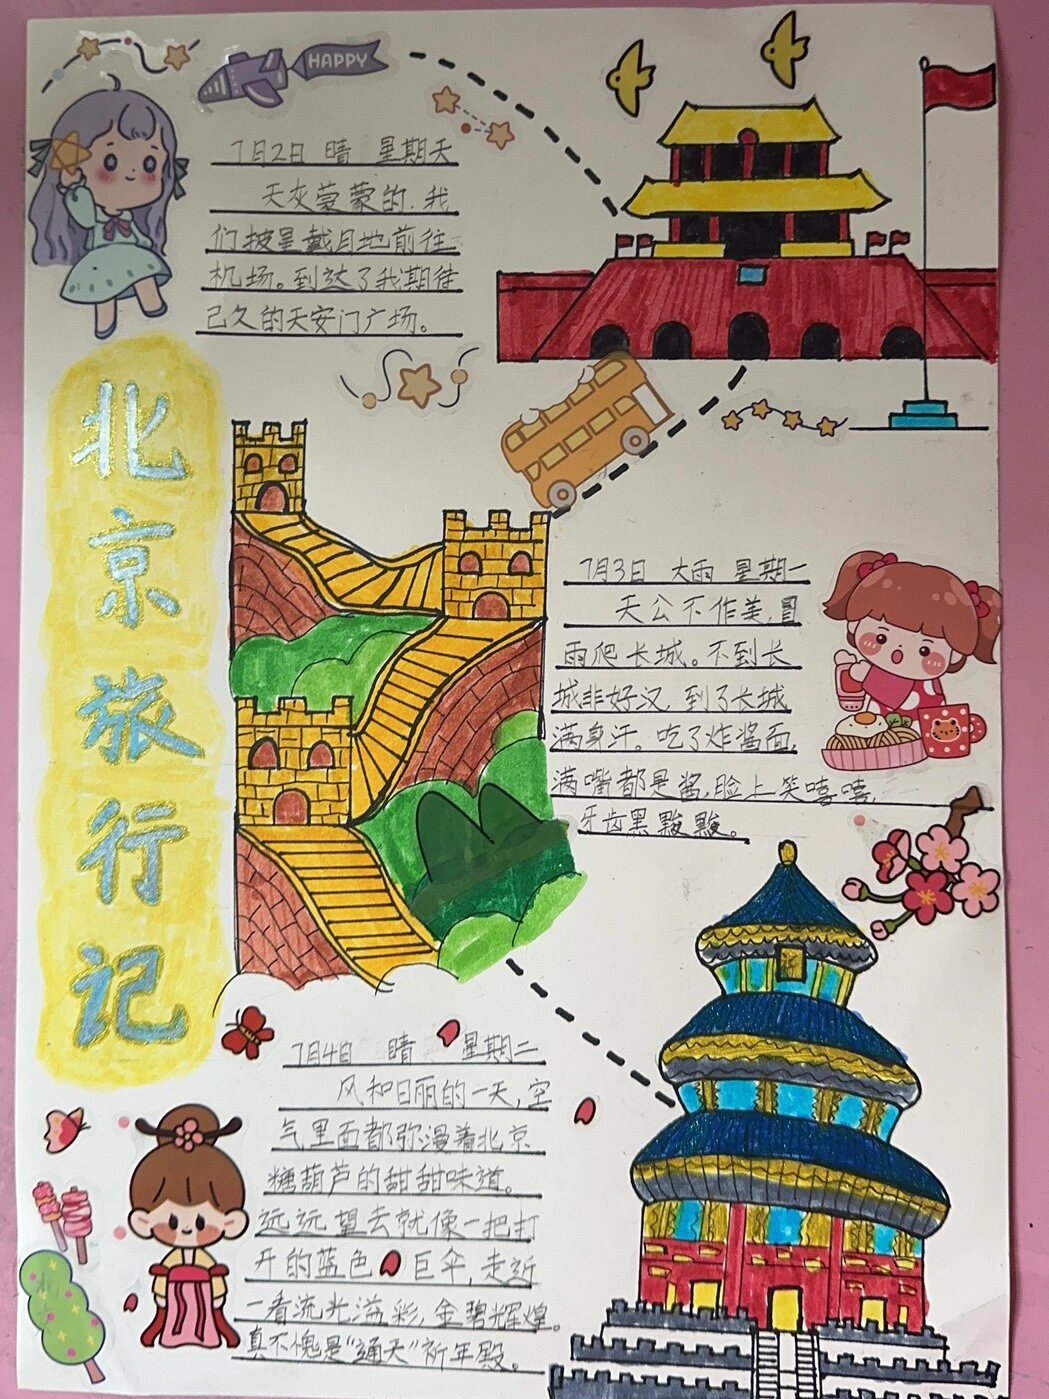 HAPPY
7月2日 晴 星期天
天灰蒙蒙的,我
们披星戴月地前往
机场。到达了我期待
己久的天安门广场。
北京旅行记
7月3日 大雨 星期一
天公不作美,冒
雨爬长城。不到长
城非好汉,到了长城
满身汗。吃了炸酱面,
满嘴都是酱,脸上笑嘻嘻,
牙齿黑黢黢。
7月4日 晴 星期二
风和日丽的一天,空
气里面都弥漫着北京
糖葫芦的甜甜味道。
远远望去就像一把打
开的蓝色巨伞,走近
一看流光溢彩,金碧辉煌。
真不愧是“通天”祈年殿。